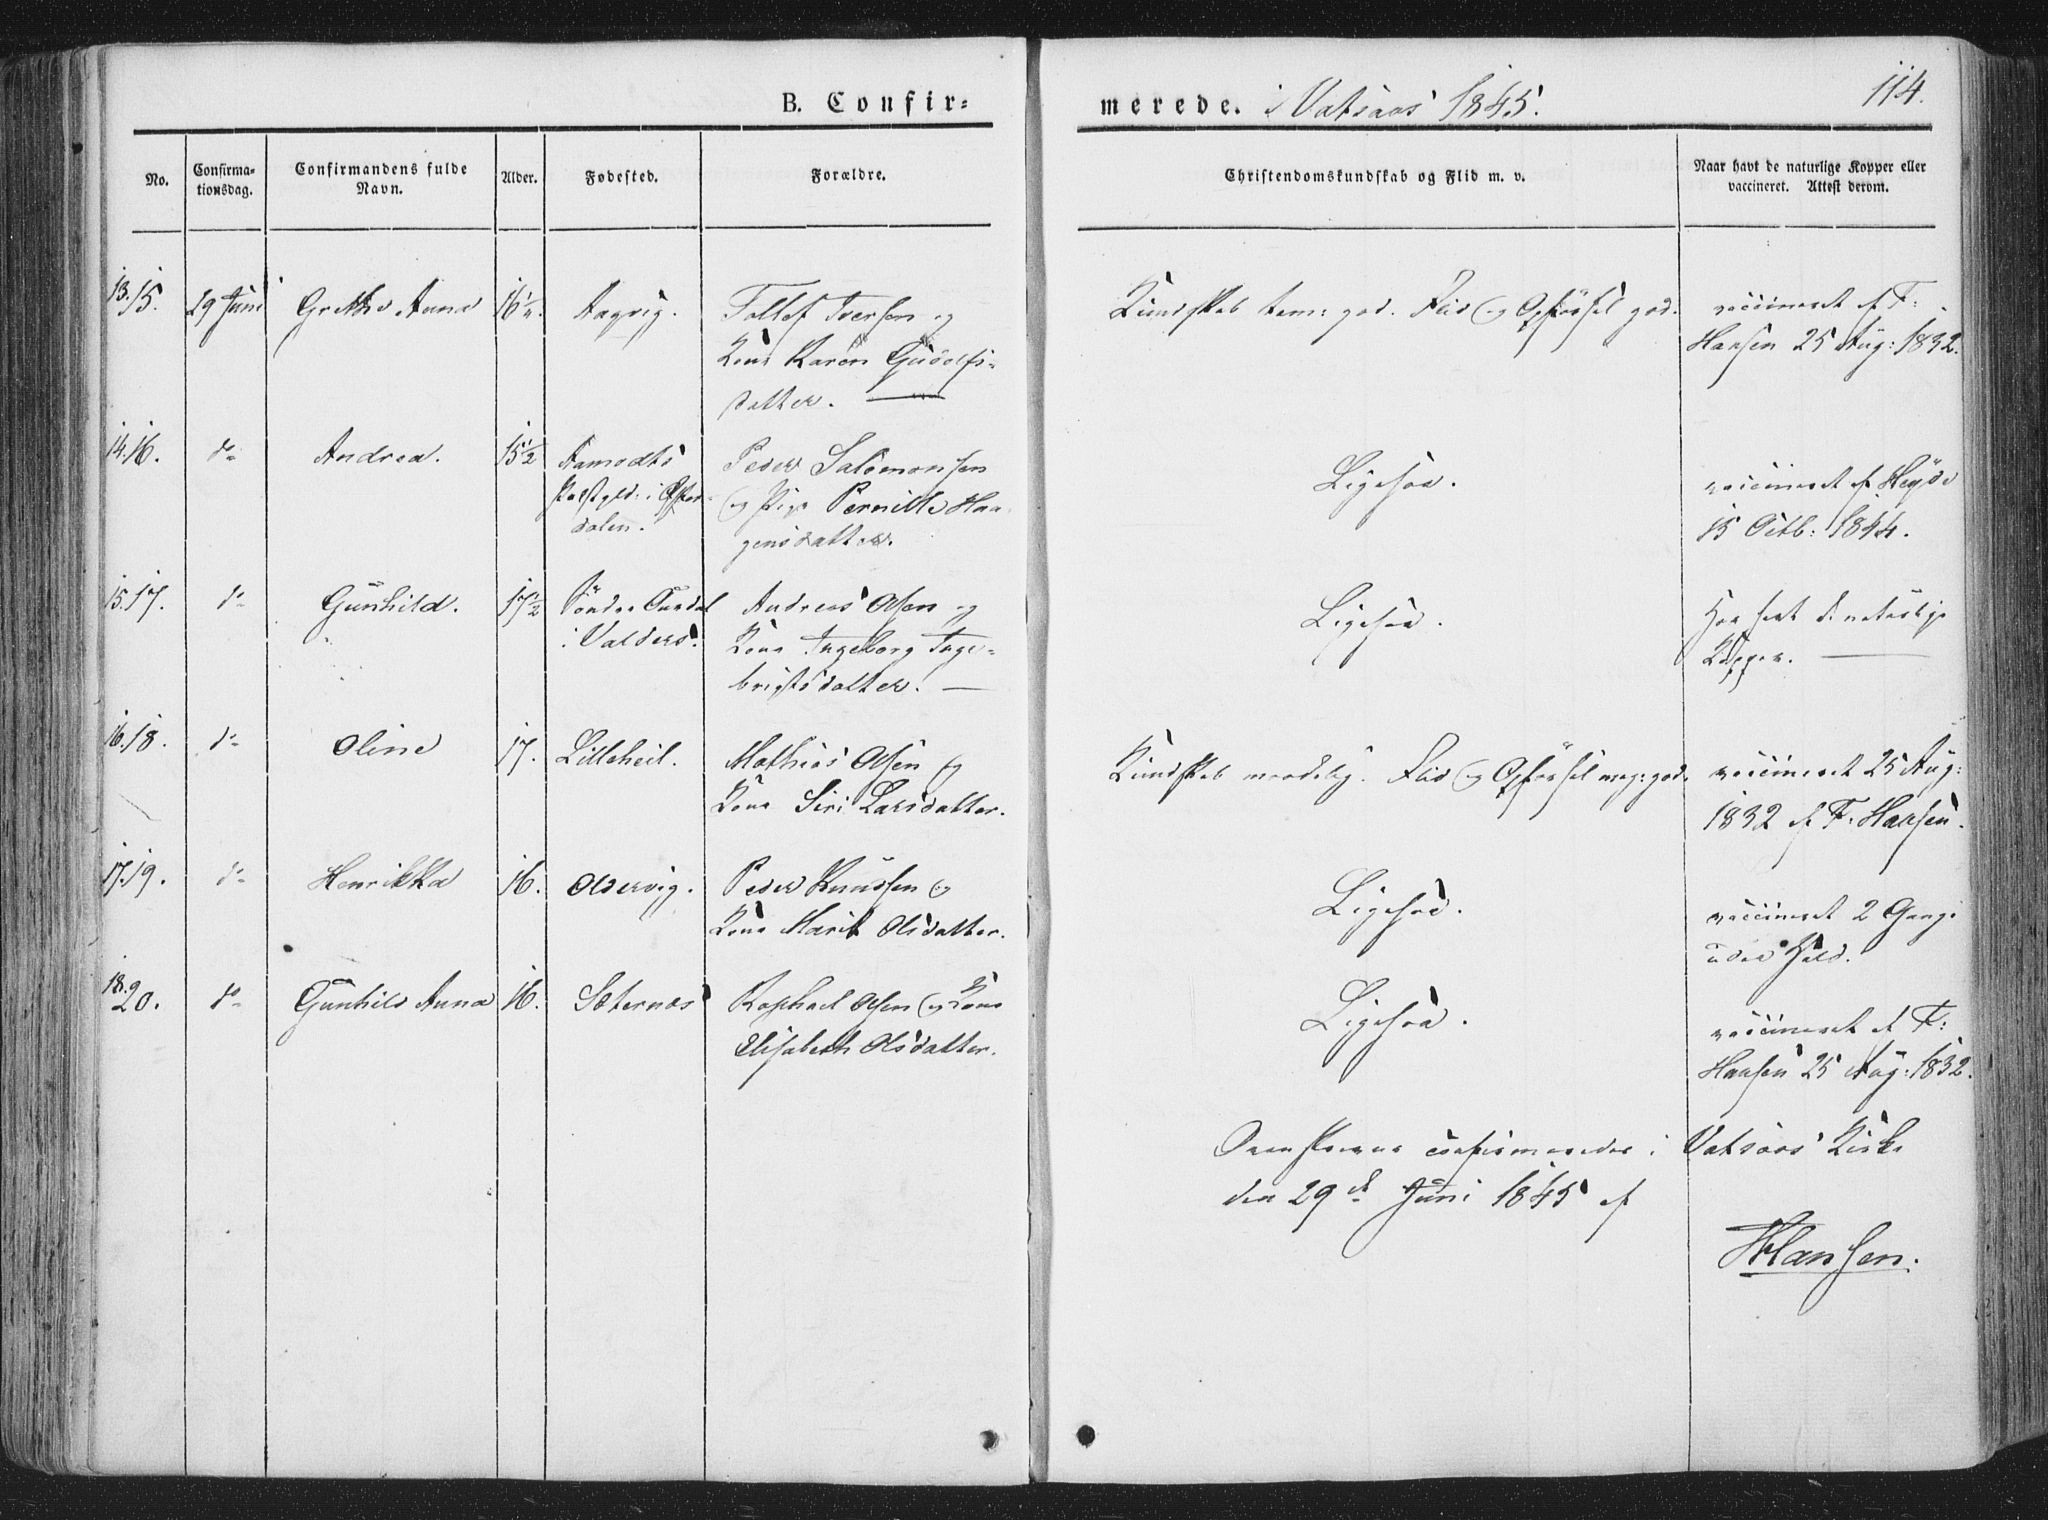 114.
B. Confir=
merede. i Vatsaas 1845.
No.
Confirma-
tionsdag.
Confirmandens fulde
Navn.
Alder.
Fødested.
Forældre.
Christendomskundskab og Flid m. v.
Naar havt de naturlige Kopper eller
vaccineret. Attest derom.
13. 15. 29 Juni Grethe Anna 16 Aagvig. Tollef Iversen og
Kone Karen Gudolfs-
datter.
Kundskab tem: god. Flid og Opførsel god.
vaccineret af F:
Hansen 25 Aug: 1832.
14. 16. do Andrea. 15½ Aamodts
Præstgld: i Øster-
dalen.
Peder Salomonsen
og Pige Pernille Haa-
gensdatter.
Ligesaa.
vaccineret af Heyde
15 Octb: 1844.
15. 17. do Gunhild. 17½ Søndre Aurdal
i Valders.
Andreas Olsen og
Kone Ingeborg Inge-
brigtsdatter.
Ligesaa.
Har havt de naturlige
Kopper.
16. 18. do Oline 17. Lilleheil. Mathias Olsen og
Kone Siri Larsdatter.
Kundskab maadelig. Flid og Opførsel meg: god.
vaccineret 25 Aug:
1832 af F. Hansen.
17. 19. do Henrikka 16. Oldervig. Peder Knudsen og
Kone Marit Olsdatter.
Ligesaa.
vaccineret 2 Gange
uden Held.
18. 20. do Gunhild Anna 16. Sæternæs Raphael Olsen og Kone
Elisabeth Olsdatter.
Ligesaa.
vaccineret af F:
Hansen 25 Aug: 1832.
Ovenskrevne confirmerede i Vatsaas Kirke
den 29de Juni 1845 af
Hansen.